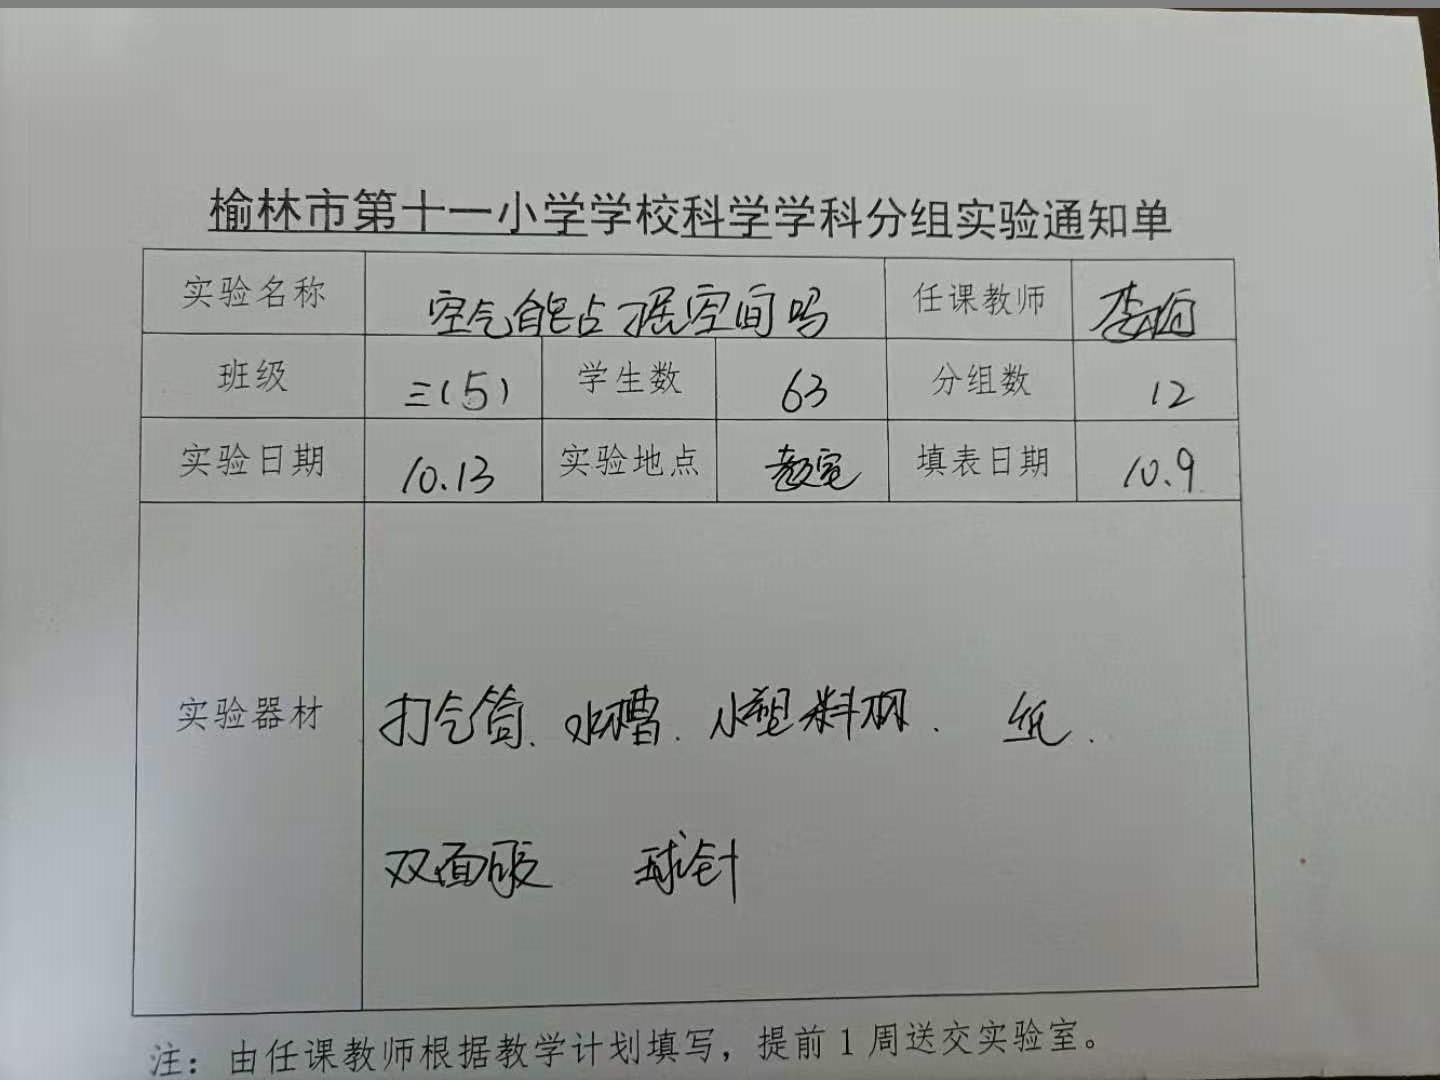 榆林市第十一小学学校科学学科分组实验通知单
实验名称 空气能占据空间吗 任课教师 李
班级 三(5) 学生数 63 分组数 12
实验日期 10.13 实验地点 教室 填表日期 10.9
实验器材 打气筒、水槽、小塑料瓶、纸、
双面胶 球针
注：由任课教师根据教学计划填写，提前1周送交实验室。